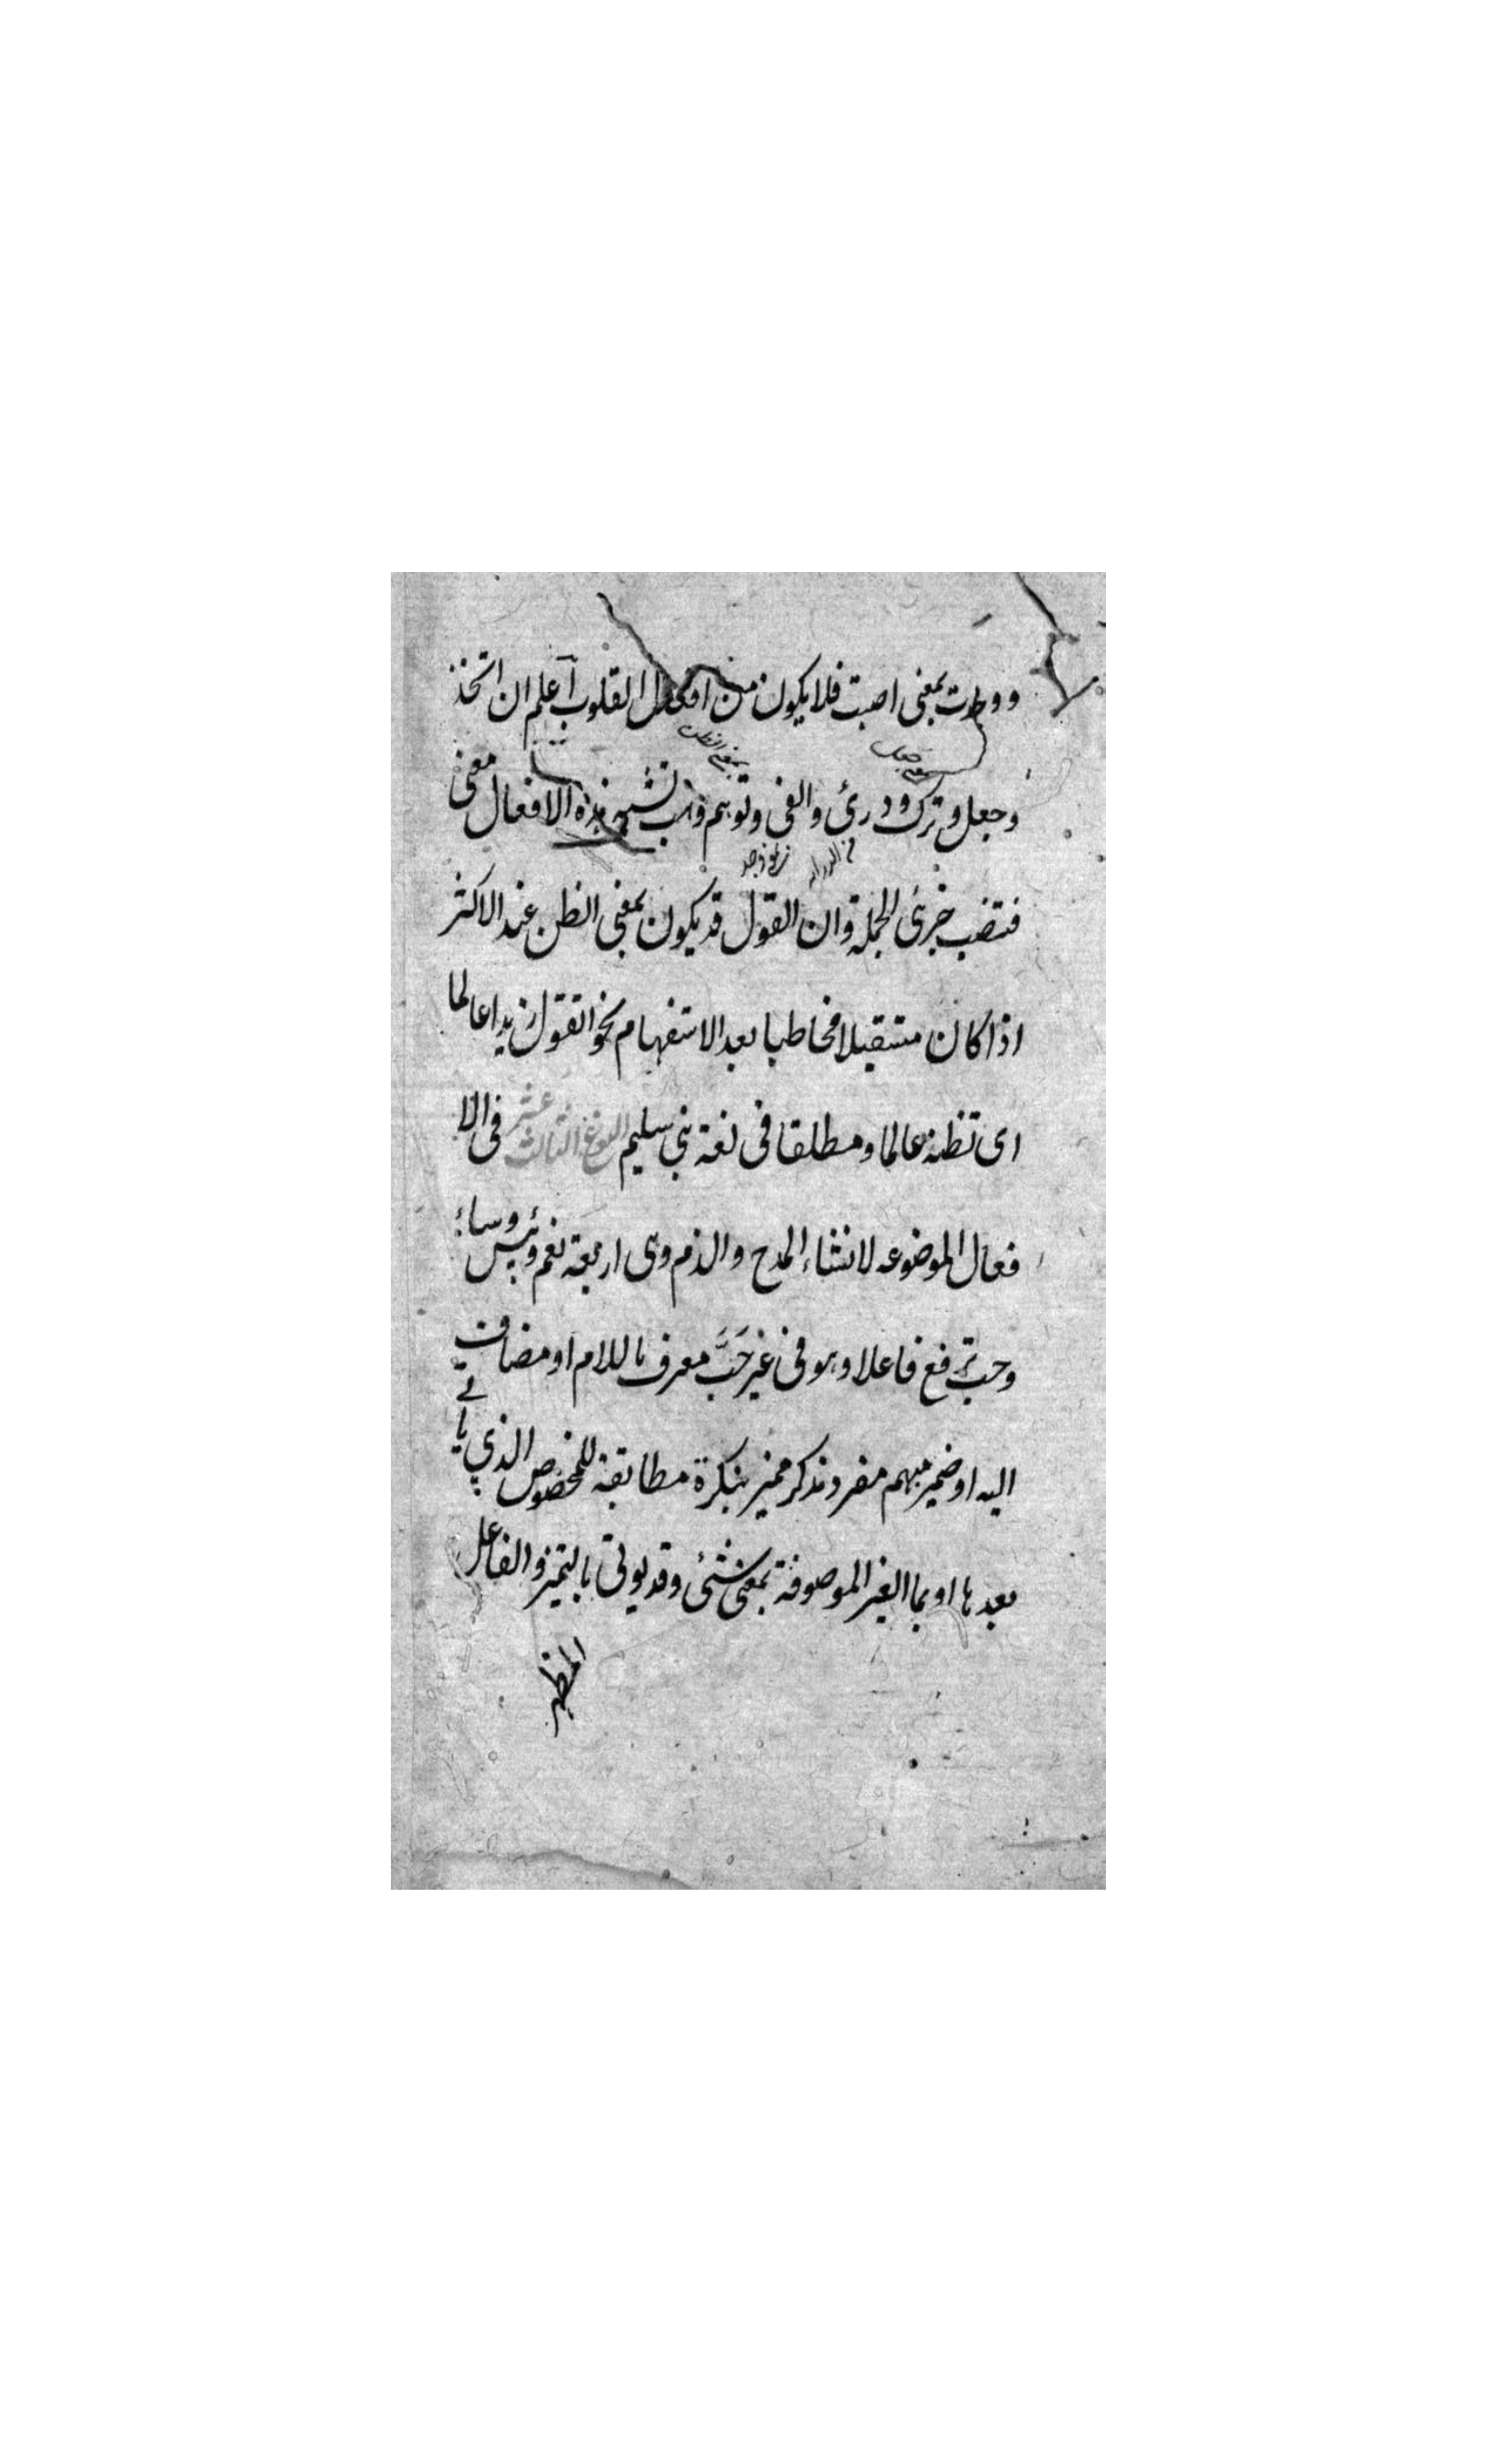 ووجدت بمعنى اصبت فلا يكون من افعال القلوب آعلم ان اتخذ
وجعل وترك ودرئ والفى وتوهم وهب تشبه هذه الافعال معنى
بمعنى الظن
فتنصب جزئى الجملة وان القول قد يكون بمعنى الظن عند الاكثر
اذا كان مستقبلا مخاطبا بعد الاستفهام نحو اتقول زيدا عالما
اى تظنه عالما ومطلقا فى لغة بنى سليم النوع الثالث عشر فى الا
فعال الموضوعه لانشاء المدح والذم وهى اربعة نعم وبئس وساء
وحب ترفع فاعلا وهو فى غير حَبَّ معرف باللام او مضاف
اليه او ضمير مبهم مفرد مذكر مميز بنكرة مطابقة للمخصوص الذي ياتے
بعدها او بما الغير الموصوفة بمعنى شئى وقد يوتى بالتميز والفاعل
المظهر